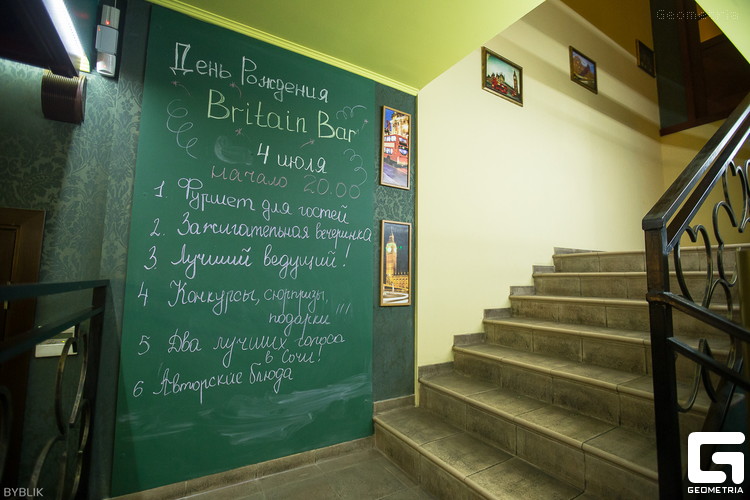 День Рождения
Britain Bar
4 июля
начало 20.00
1. Фуршет для гостей
2. Зажигательная вечеринка
3. Лучший ведущий!
4 Конкурсы, сюрпризы,
подарки!!!
5 Два лучших голоса
в Сочи!
6 Авторские блюда
Geometria
BYBLIK
GEOMETRIA